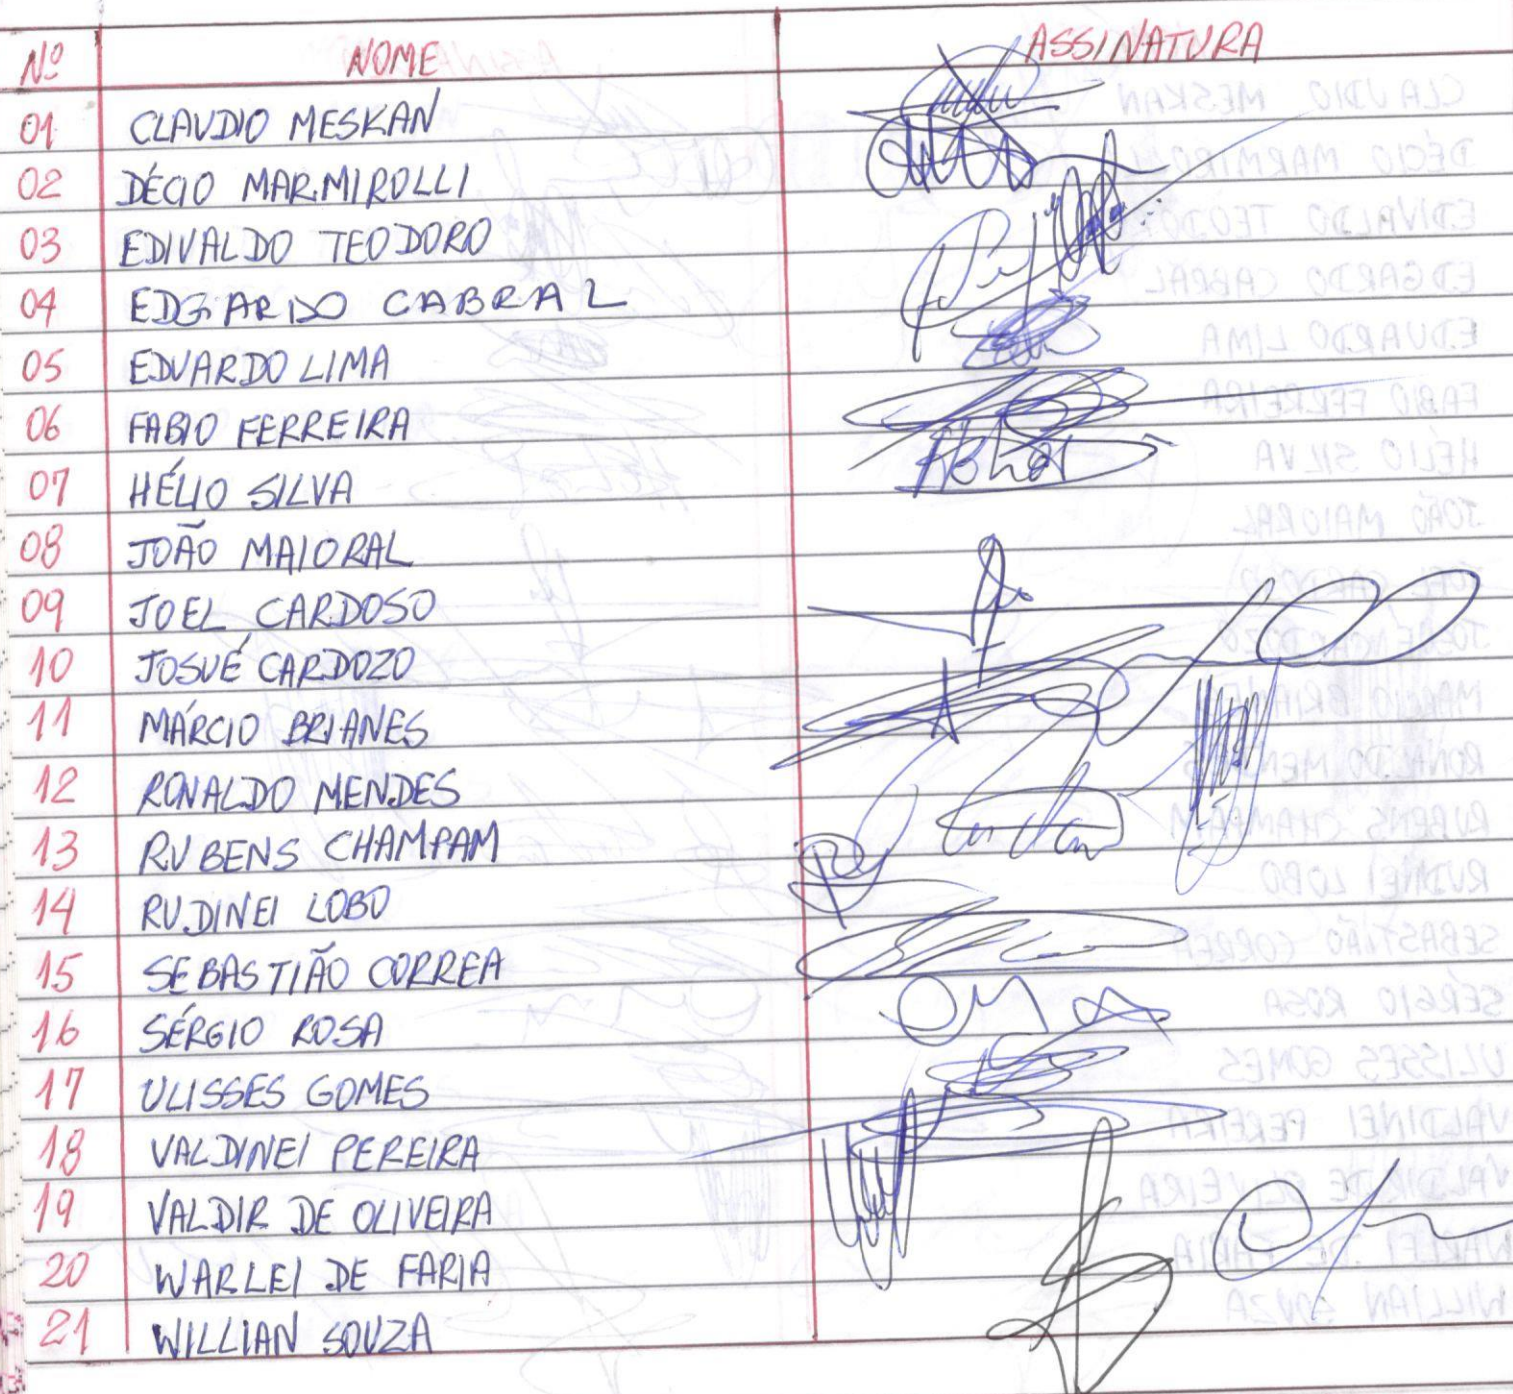 Nº NOME ASSINATURA
01 CLAUDIO MESKAN
02 DÉCIO MARMIROLLI
03 EDIVALDO TEODORO
04 EDGARDO CABRAL
05 EDUARDO LIMA
06 FABIO FERREIRA
07 HÉLIO SILVA
08 JOÃO MAIORAL
09 JOEL CARDOSO
10 JOSUÉ CARDOZO
11 MÁRCIO BRIANES
12 RONALDO MENDES
13 RUBENS CHAMPAM
14 RUDINEI LOBO
15 SEBASTIÃO CORREA
16 SÉRGIO ROSA
17 ULISSES GOMES
18 VALDINEI PEREIRA
19 VALDIR DE OLIVEIRA
20 WARLEI DE FARIA
21 WILLIAN SOUZA